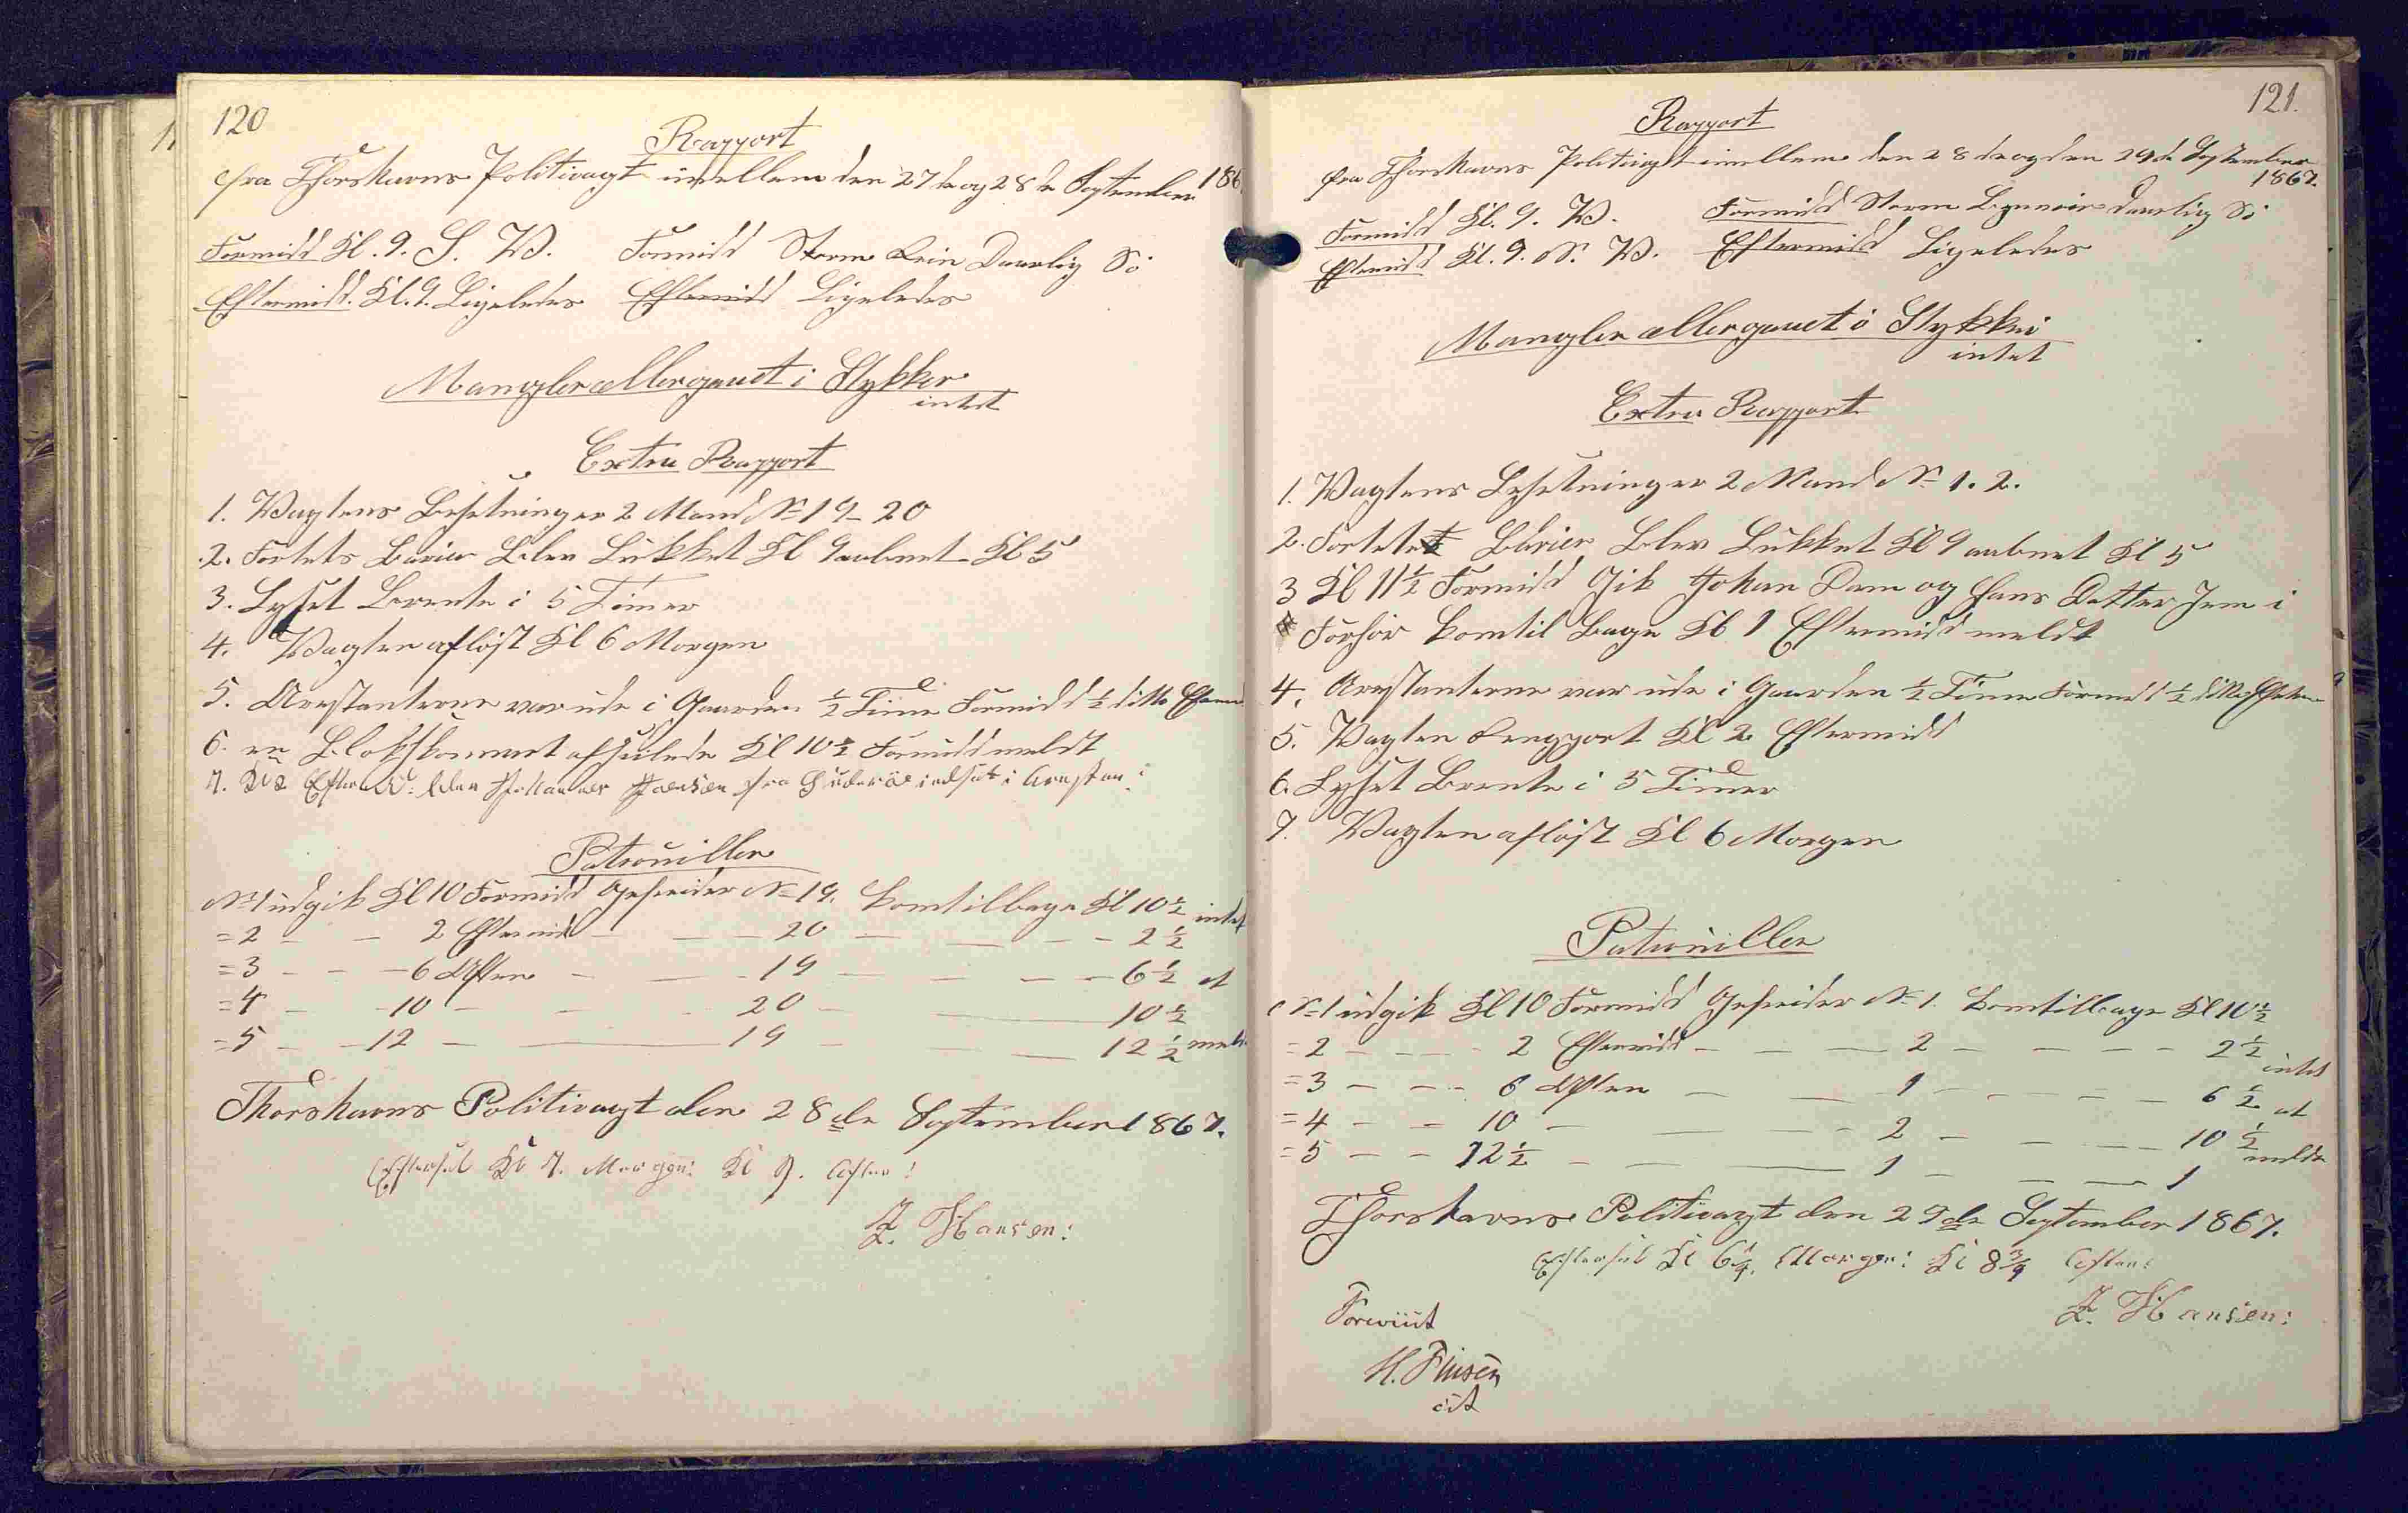 120
Rapport
fra Thorshavns Politivagt imellem den 27de og 28de September 186
Formidd Kl. 9. S. W. Formidd Storm Rein Daarlig Sö
Eftermidd. Kl. 9. Ligeledes Eftermidd Ligeledes
Mangler eller gaaet i Stykker
intet
Extra Rapport
1. Vagtens Besetning er 2 Mand No 19 - 20
2. Fortets Barier Blev Lukket Kl 9 aabnet Kl 5
3. Lyset Brente i 5 Timer
4. Vagten aflöst Kl 6 Morgen
5. Arestanterne var ude i Gaarden ½ Time Formidd ½ ditto
6. en Kl 10½ Formidd meldt
7. Kl 2 Efterm. blev Jensen fra Suderöe indsat i Aresten
Patrouiller
No 1 udgik Kl 10 Formidd Gefreider No 19. kom tilbage Kl 10½ intet
= 2 - - 2 Eftermidd - - - 20 - - - - 2½
= 3 - - - 6 Aften - - - 19 - - - - 6½ at
= 4 - - 10 - - - 20 - - 10½
= 5 - - 12 - - 19 - - 12½
Thorshavns Politivagt den 28de September 1867.
Eftersat Kl 7. Morgen: Kl 9. Aften!
Z. Hansen:
121.
Rapport
fra Thorshavns Politivagt imellem den 28de og den 29de September
1867.
Formidd Kl. 9. W. Formidd Storm Daarlig Sö
Eftermidd Kl. 9. N. W. Eftermidd Ligeledes
Mangler eller gaaet i Stykker
intet
Extra Rapport
1. Vagtens Besetning er 2 Mand No 1. 2.
2. Fortetet Barier Blev Lukket Kl 9 aabnet Kl 5
3 Kl 11½ Formidd Gik Johan Dam og Hans Datter i
Forhör kom til Bage Kl 1 Eftermidd meldt
4. Arestanterne var ude i Gaarden ½ Time Formidd ½ ditto
5. Vagten Kl 2 Eftermidd
6. Lyset Brente i 5 Timer
7. Vagten aflöst Kl 6 Morgen
Patrouiller
No 1 udgik Kl 10 Formidd Gefreider No 1. kom tilbage Kl 10½
= 2 - - - - 2 Eftermidd - - - 2 - - - - - 2½
intet
= 3 - - - - 6 Aften - - 1 - - - - - 6½ at
= 4 - - 10 - - - - 2 - - - - 10½
= 5 - - 12½ - - - 1 - - - 1 meldt
Thorshavns Politivagt den 29de September 1867.
Eftersat Kl 6¼. Morgen: Kl 8¾ Aften:
Z. Hansen:
Foreviist
H. Finsen
cst